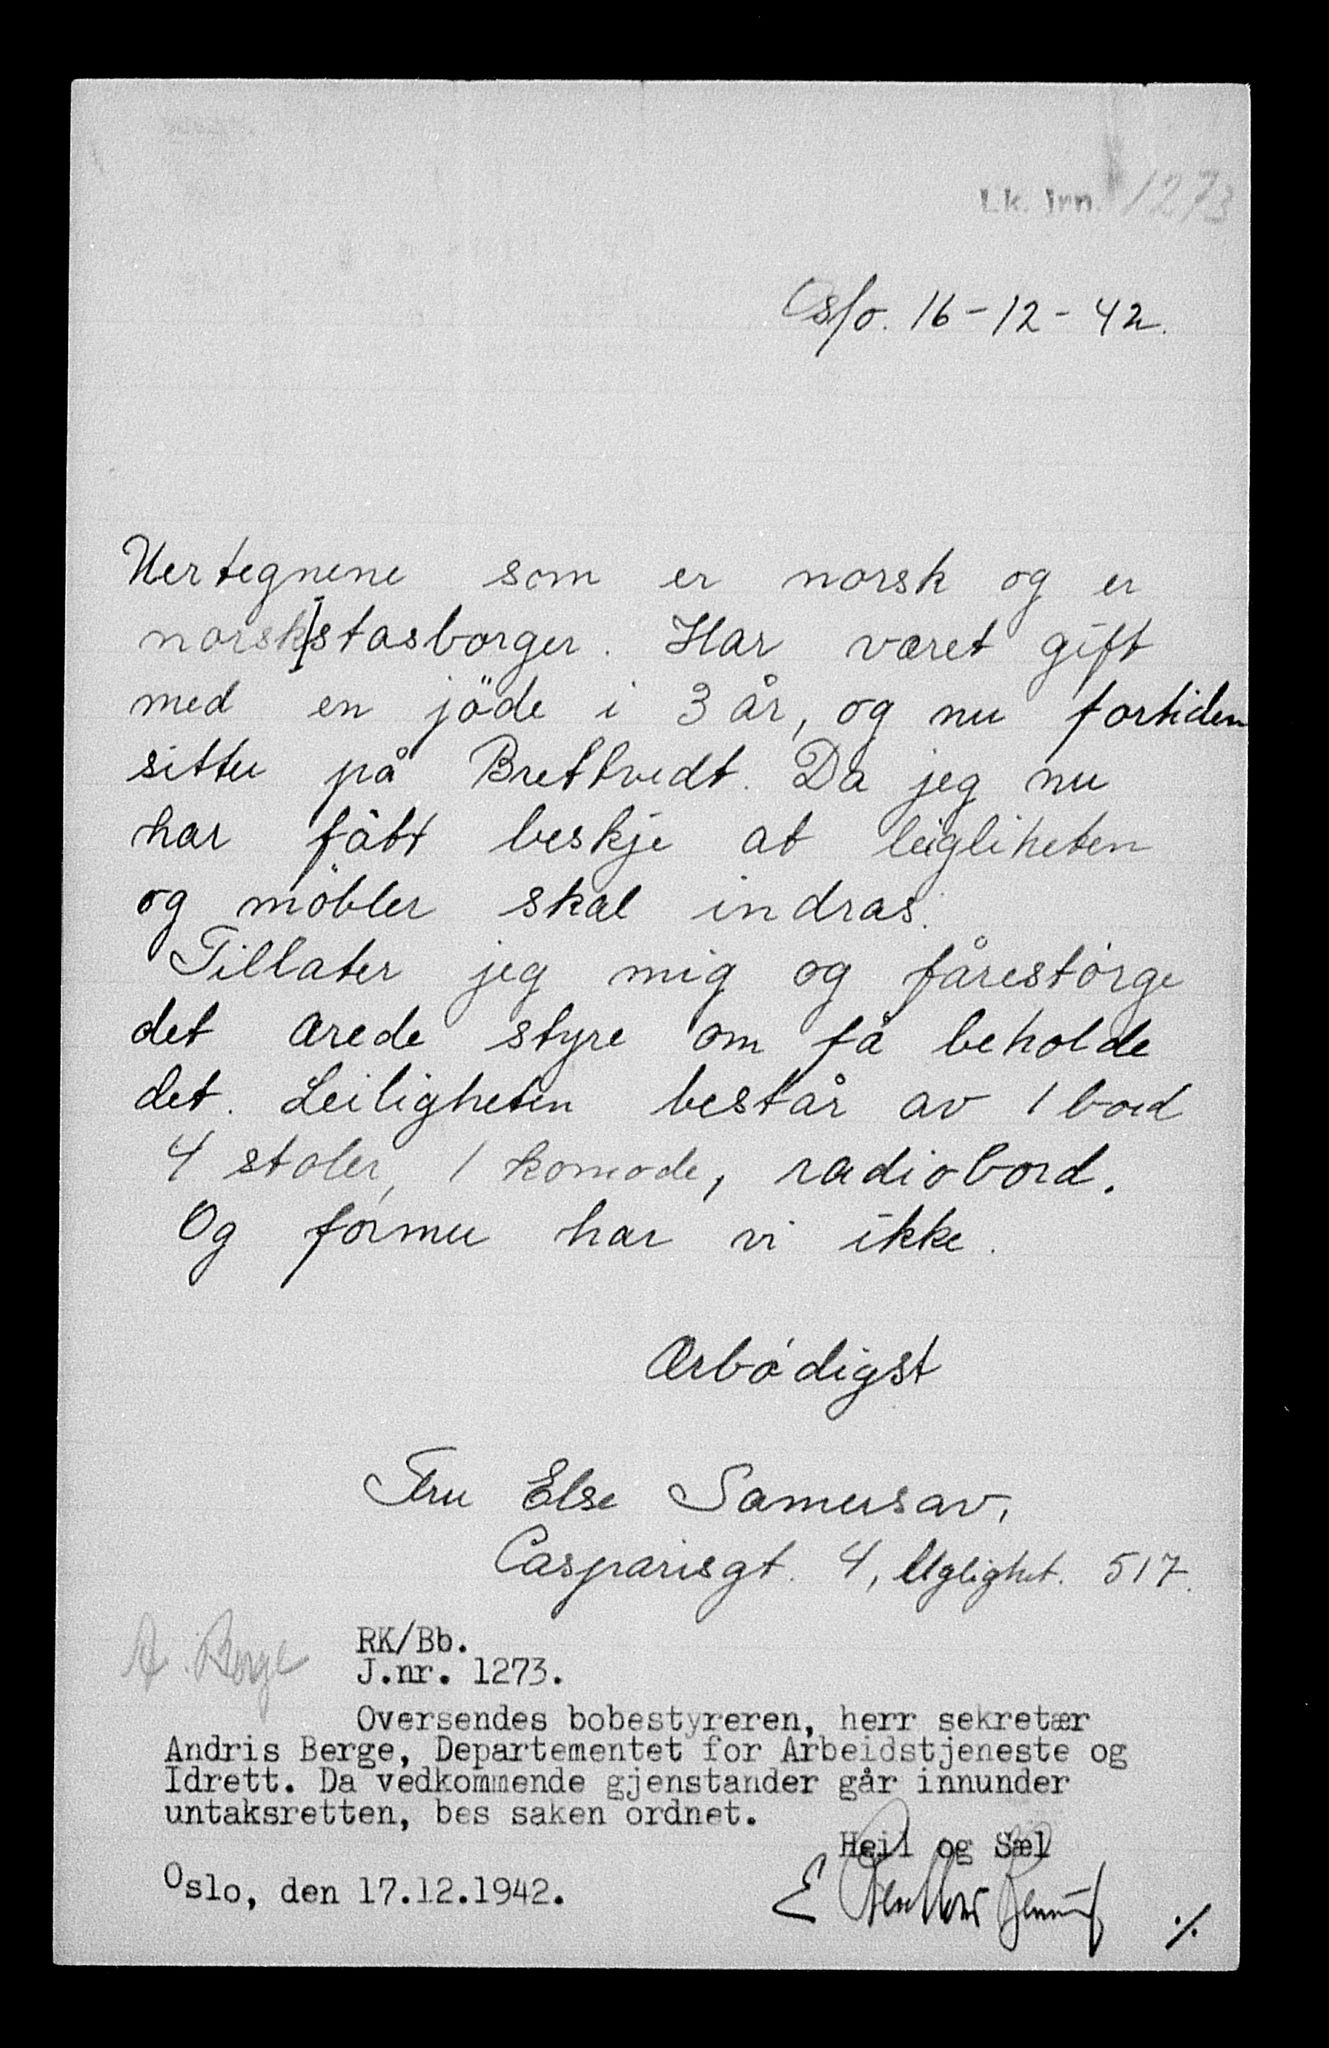 Lk. Jrn. 1273
Oslo. 16-12-42.
Uertegnene som er norsk og er
norsk stasborger. Har været gift
med en jöde i 3 år, og nu fortiden
sitter på Brettvedt. Da jeg nu
har fått beskje at leigliheten
og möbler skal indras.
Tillater jeg mig og fårestørge
det ærede styre om få beholde
det. Leiligheten består av 1 bord
4 stoler, 1 komode, radiobord.
Og formue har vi ikke.
Ærbødigst
Fru Else
Casparisgt. 4, 517.
A. Berge
RK/Bb.
J.nr. 1273.
Oversendes bobestyreren, herr sekretær
Andris Berge, Departementet for Arbeidstjeneste og
Idrett. Da vedkommende gjenstander går innunder
untaksretten, bes saken ordnet.
Heil og Sæl
Oslo, den 17.12.1942.
E
./.